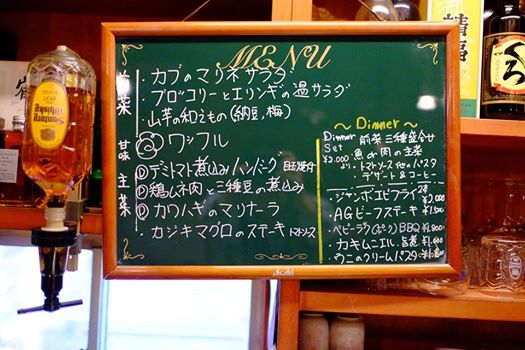 MENU
前菜
・カブのマリネサラダ
・ブロッコリーとエリンギの温サラダ
・山芋の和えもの(納豆、梅)
甘味
ワッフル
主菜
Ⓓデミトマト煮込みハンバーグ 目玉焼付
Ⓓ鶏モネ肉と三種豆の煮込み
Ⓓカワハギのマリナーラ
・カジキマグロのステーキ トマトソース
～Dinner～
Dinner Set ¥2,000より
前菜三種盛合せ
・魚or肉の主菜
・トマトソース他のパスタ
デザート&コーヒー
・ジャンボエビフライ 2本 ¥2,000
・AGビーフステーキ ¥1,500
・ベビーラク BBQ ¥1,800
・カキムニエル、旨煮 ¥1,600
・ウニのクリームパスタ ¥1,800
Asahi
Suntory
Whisky